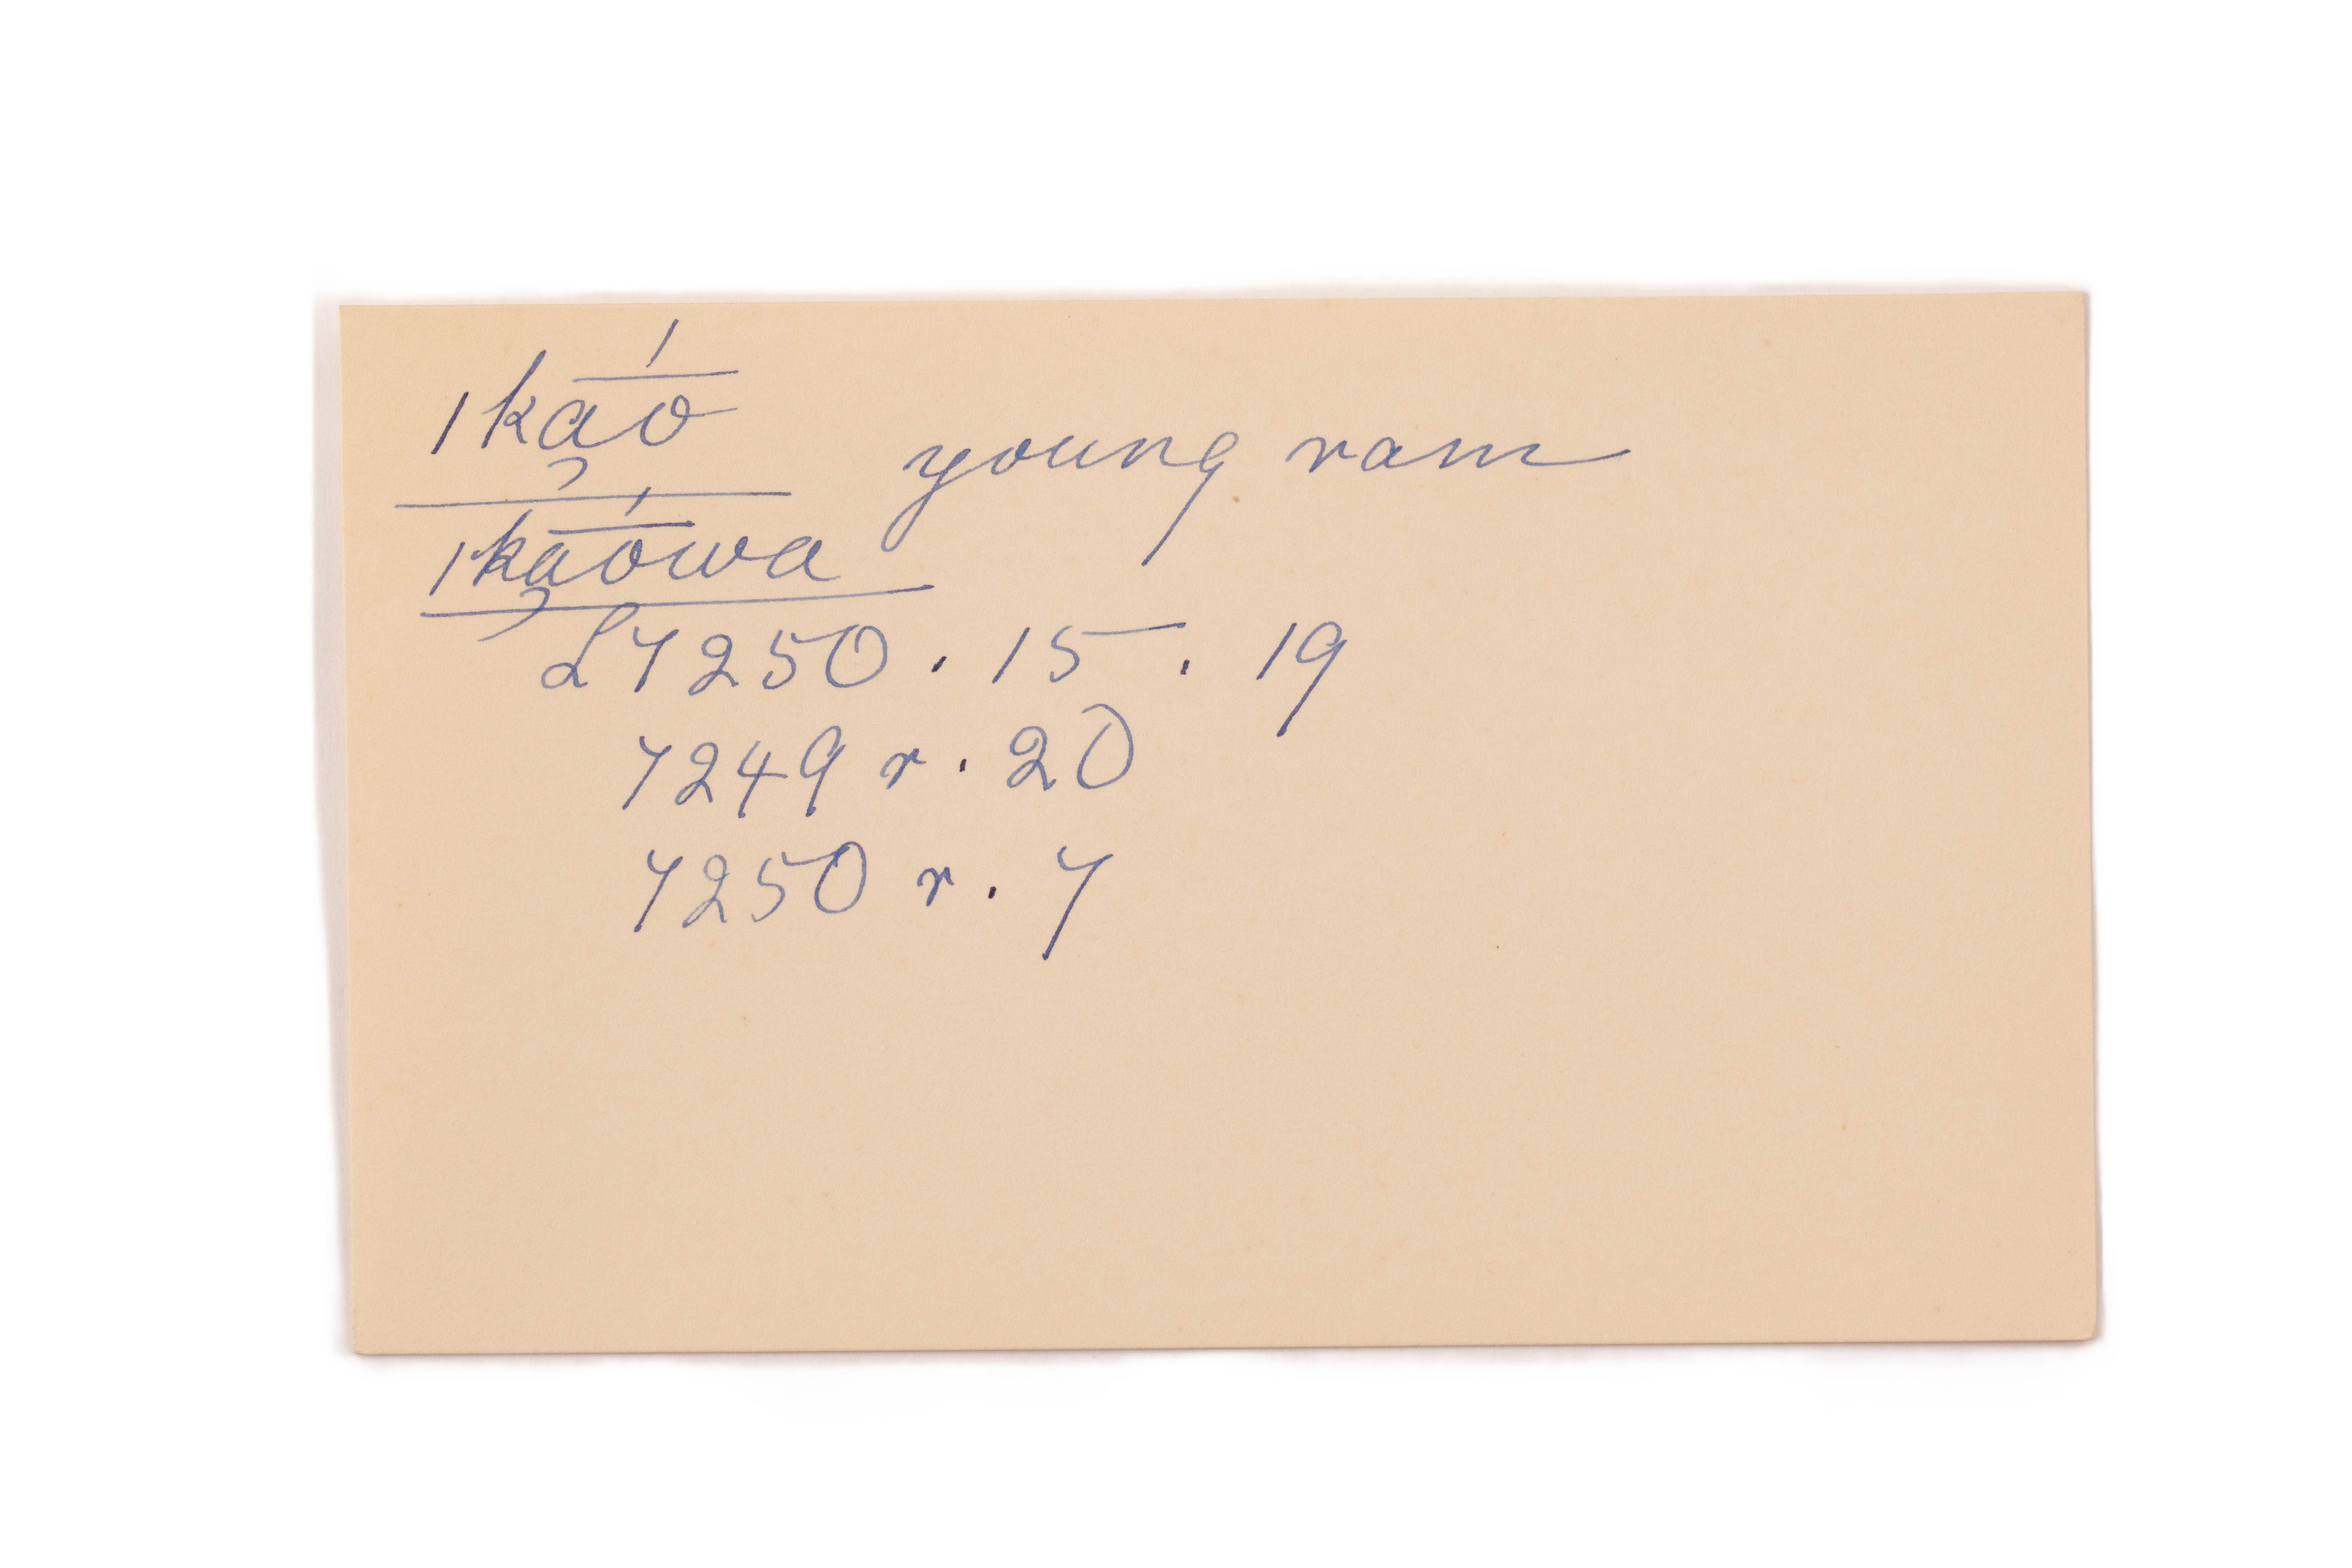 iką́ō young ram
iką́ōwa
L7250 . 15 . 19
7249 r . 20
7250 r . 7